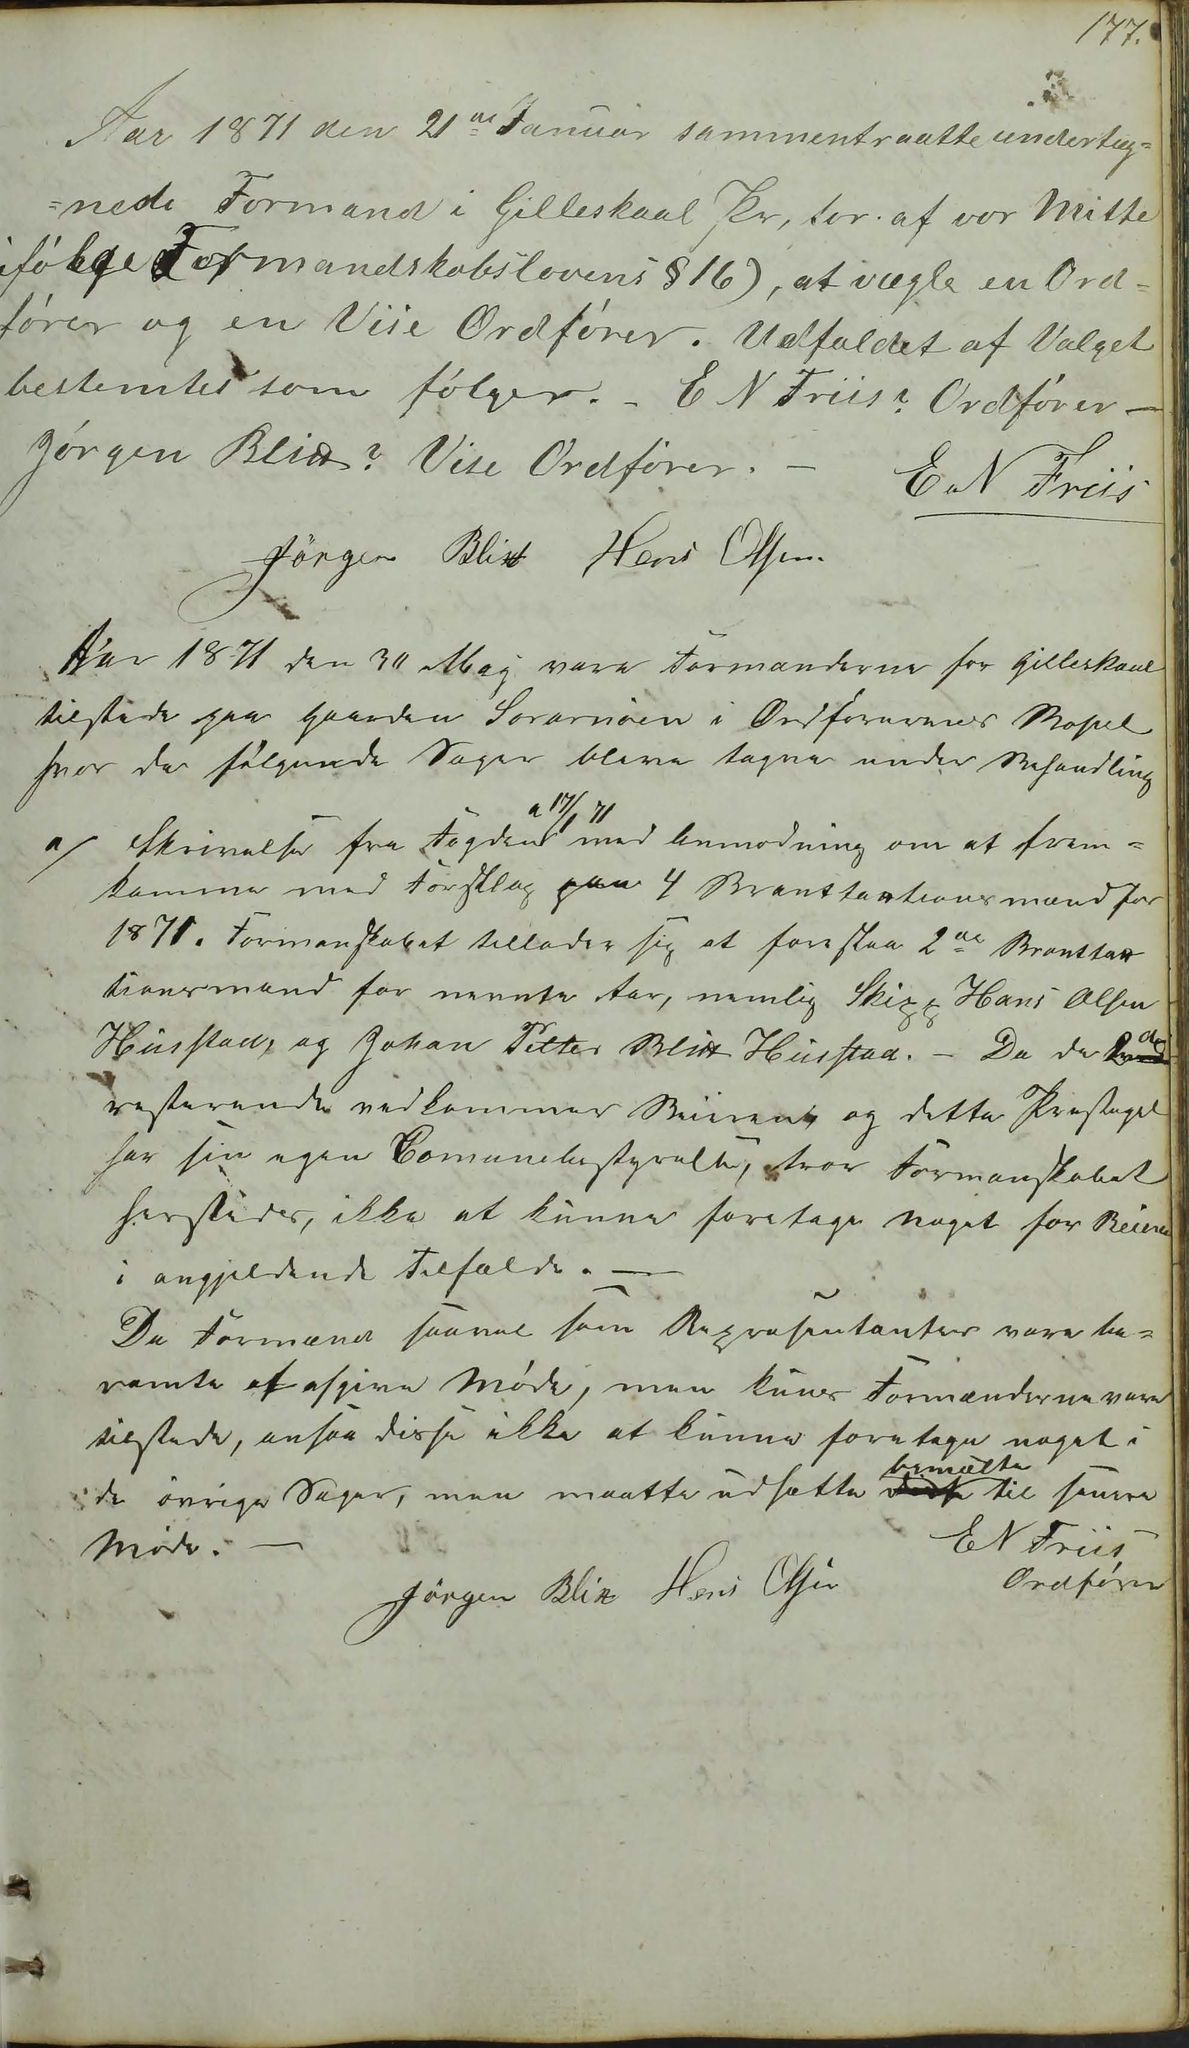 177.
Aar 1871 den 21de Januar sammentraatte underteg=
=nede Formænd i Gilleskaal Pr, for af vor Mitte
ifölge Formandskabslovens § 16), at vægle en Ord=
förer og en Vise Ordförer. Udfaldet af Valget
bestemtes som fölger. - E N Friis? Ordförer -
Jörgen Blix? Vise Ordförer. - E N Friis
Jörgen Blix Hans Olsen
Aar 1871 den 30 Maj vare Formænderne for Gilleskaal
tilstede paa Gaarden Sörarnöen i Ordförerens Bopæl
hvor de fölgende Sager bleve tagne under Behandling
a/ Skrivelse fra Fogden a 17/1 71 med Anmodning om at frem=
komme med Forslag paa 4 Branttaxtionsmænd for
1871. Formanskabet tillader sig at foreslaa 2de Branttax
tionsmænd for nevnte Aar, nemlig Skipp Hans Olsen
Husstad, og Johan Petter Blix Husstad. - Da de 2de
resterende vedkommer Beieren og dette Prestegel
har sin egen Comunebestyrelse, tror Formanskabet
herstedes, ikke at kunne foretage noget for Beieren
i angjeldende Tilfælde. -
Da Formænd saavel som Repræsentanter vare be=
ramte at afgive Möde, men kuns Formænderne vare
tilstede, ansaa disse ikke at kunne foretage noget i
de övrige Sager, men maatte udsætte bemælte til senere
Möde. - E N Friis
Ordförer
Jörgen Blix Hans Olsen